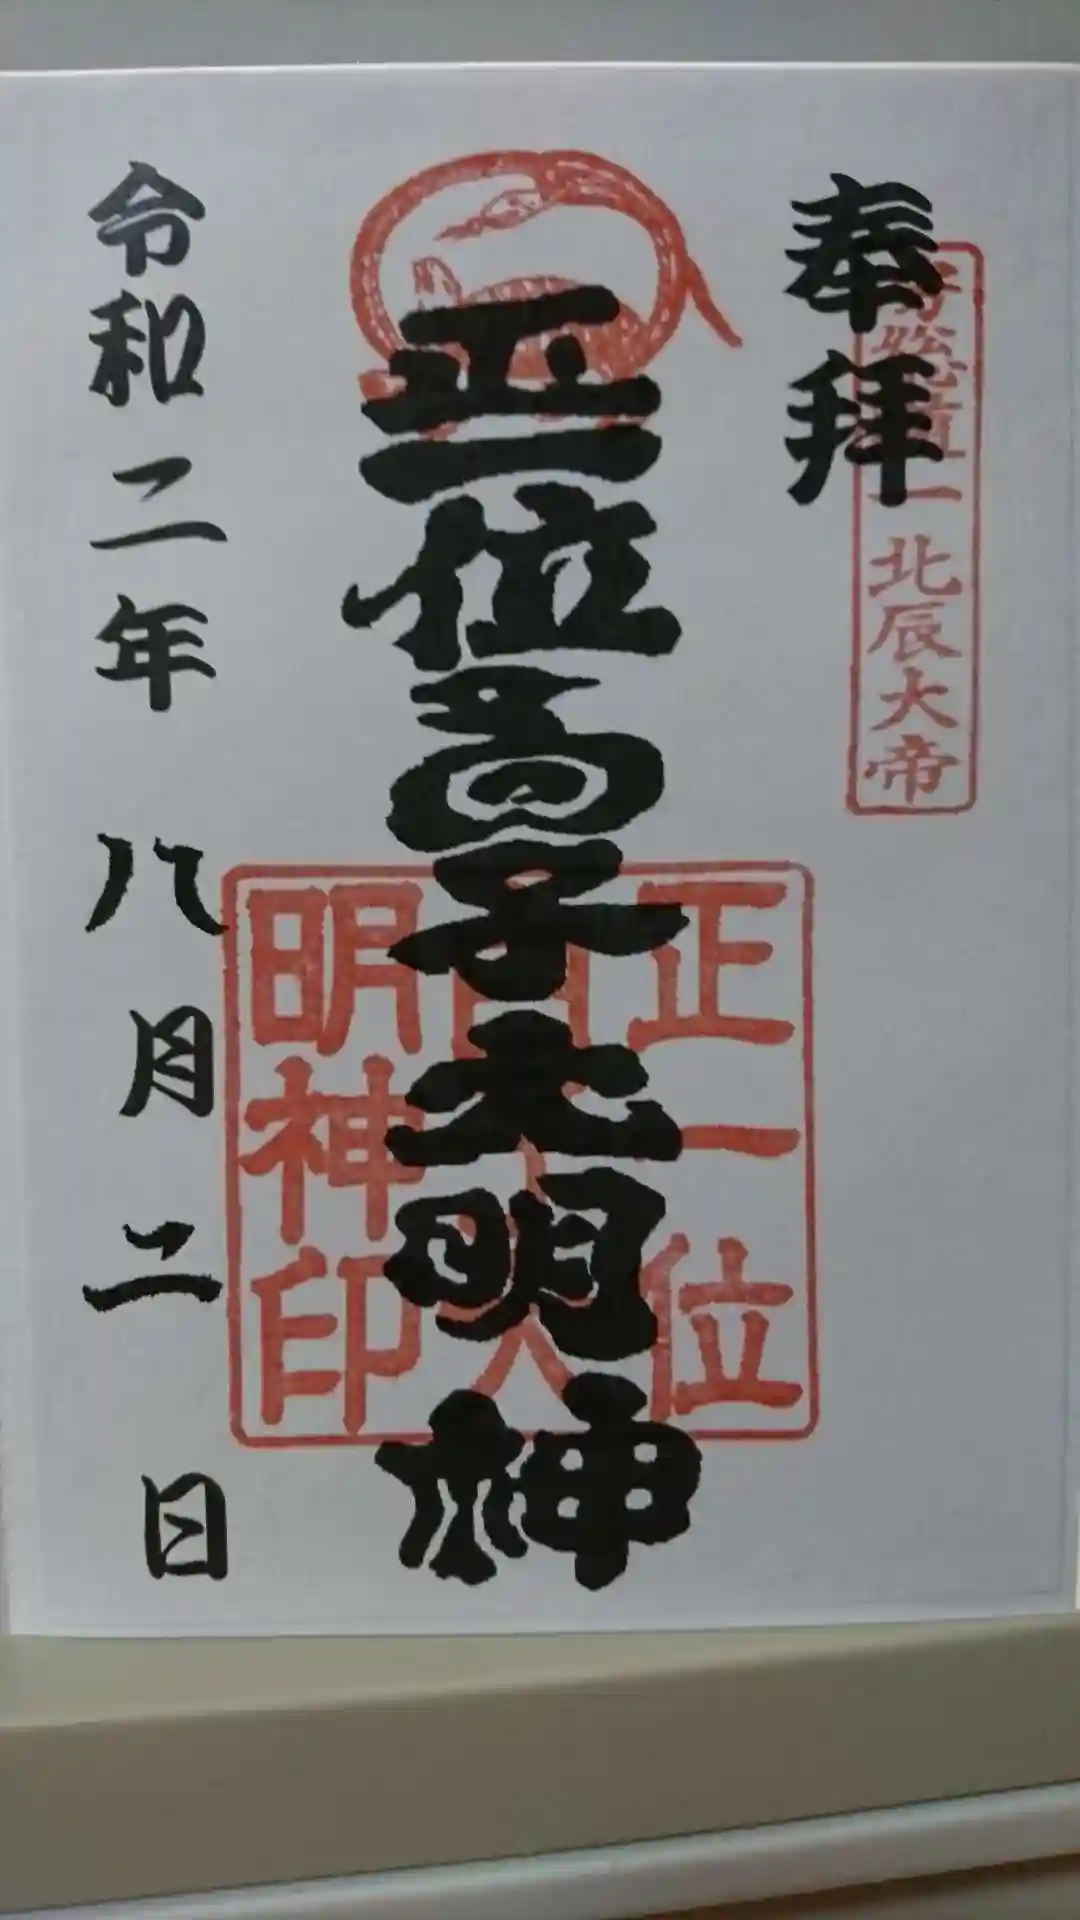 奉拜
北辰大帝
正一位高子大明神
正一位
明神印
令和二年八月二日